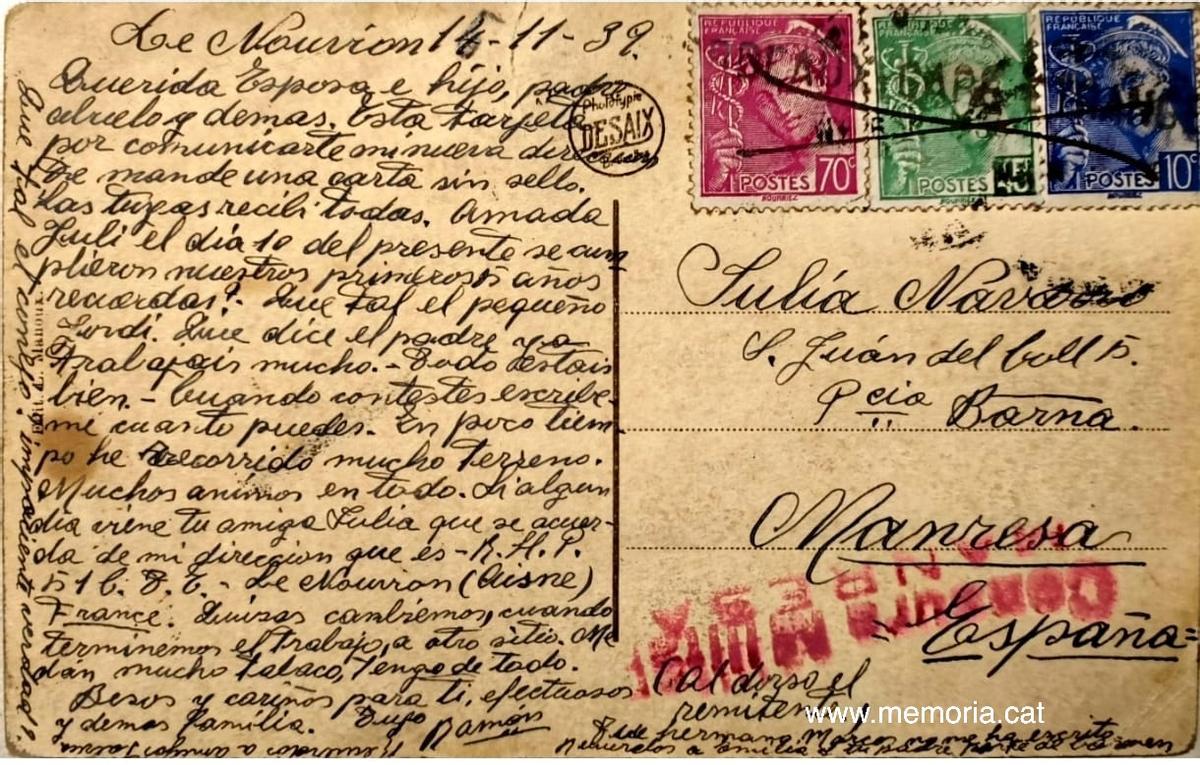 Le Nouvion 14-11-39.
Querida Esposa e hijo, padre
abuelo y demas. Esta tarjeta
por comunicarte mi nueva
Te mande una carta sin sello.
Las tuyas recibi todas. Amada
Juli el día 10 del presente se cum
plieron nuestros primeros 5 años
recuerdas? Que tal el pequeño
Jordi. Que dice el padre y a
trabajais mucho.- Todo estais
bien.- Cuando contestes escribe
mi cuanto puedes. En poco tiem-
po he recorrido mucho terreno.
Muchos animos en todo. Si algun
dia viene tu amiga Julia que se acuer-
da de mi direccion que es - R.H.P.
51 C. T. E. - Le Nouvion (Aisne)
France. Quizas cambiemos, cuando
terminemos el trabajo, a otro sitio. Me
dán mucho tabaco, tengo de todo.
Besos y cariños para ti, efectuosos
y demas familia. Tuyo
Ramón
Que tal el conejo? impaciente verdad?
Edit. A. Manouk.
Phototypie
DESAIX
RÉPUBLIQUE FRANÇAISE
POSTES 70c
RÉPUBLIQUE FRANÇAISE
POSTES 45
RÉPUBLIQUE FRANÇAISE
POSTES 10
Julia Navarro
S. Juán del Coll 5.
Pcia Barna.
Manresa
España
CENSURA
MANRESA
Cat dorso el
remitente
www.memoria.cat
hermano Marcos no me ha escrito
Recuerdos a